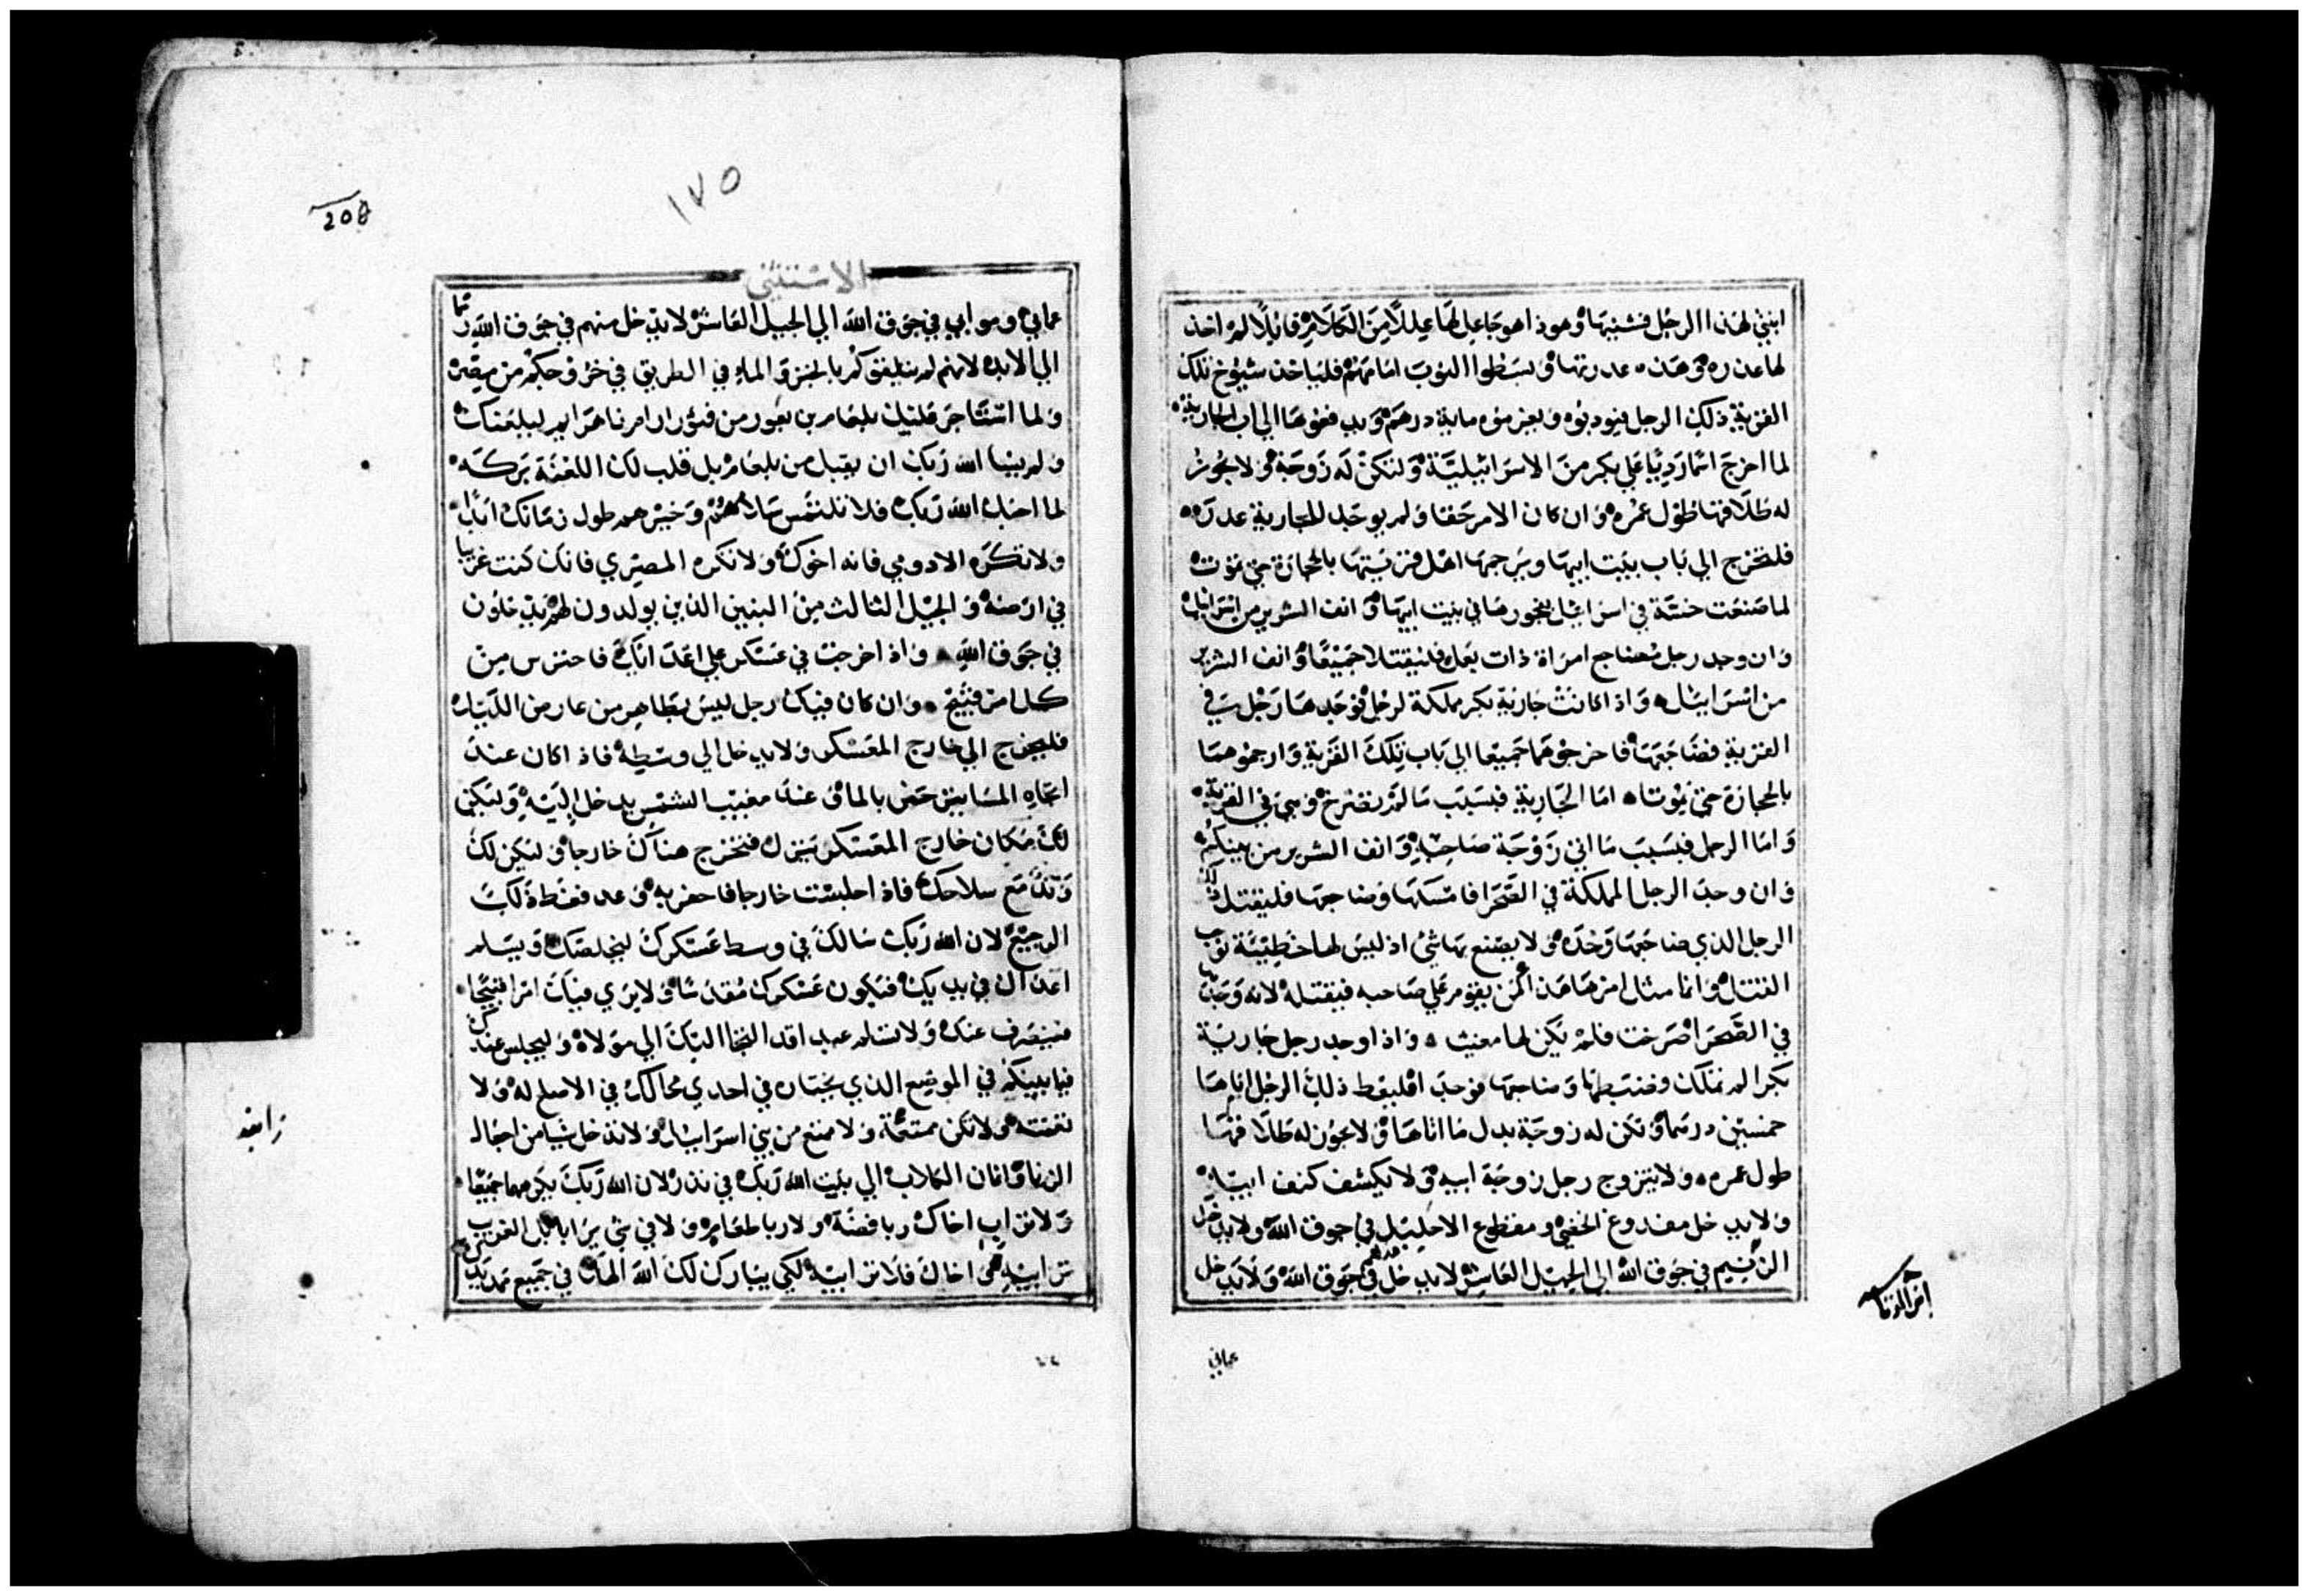 ابنتي لهذا الرجل فشنيها وهوذا هو جاعل لها عللا من الكلام قايلا لم اخذ
لها عدره وهذه عدرتها وليبسطوا الثوب امامهم فلياخذ شيوخ تلك
القرية ذلك الرجل فيودبوه ويغرموه ماية درهم ويدفعوها الي اب الجارية
لما اخرج اسما رديا علي بكر من الاسرائيلية ولتكن له زوجة ولا يجوز
له طلاقها طول عمره وان كان الامر حقا ولم يوجد للجارية عدره
فلتخرج الي باب بيت ابيها ويرجمها اهل قريتها بالحجارة حتي تموت
لما صنعت خسة في اسراييل بفجورها في بيت ابيها وانف الشرير من اسراييل
وان وجد رجل مضاجع امراة ذات بعل فليقتلا جميعا وانف الشرير
من اسراييل واذا كانت جارية بكر مملكة لرجل فوجدها رجل في
القرية فضاجعها فاخرجوهما جميعا الي باب تلك القرية وارجموهما
بالحجارة حتي يموتا اما الجارية فبسبب ما لم تصرخ وهي في القرية
واما الرجل فبسبب ما اتي زوجة صاحبه وانف الشرير من بينكم
وان وجد الرجل المملكة في الصحرا فامسكها وضاجعها فليقتل ذلك
الرجل الذي ضاجعها وحده ولا يصنع بها شي اذ ليس لها خطيئة توجب
القتل وانما مثال امرها هذا كمن يقوم علي صاحبه فيقتله لانه وجدها
في الصحرا صرخت فلم يكن لها مغيث واذا وجد رجل جارية
بكرا لم تملك وضبطها وضاجعها فوجدا فليعط ذلك الرجل اباها
خمسين درهما وتكن له زوجة بدل ما اتاها ولا يجوز له طلاقها
طول عمره ولا يتزوج رجل زوجة ابيه ولا يكشف كنف ابيه
ولا يدخل مفدوغ الخصي ومقطوع الاحليل في جوق الله ولا يدخل
الزنيم في جوق الله الي الجيل العاشر لا يدخل في جوق الله ولا يدخل
عماني
208
١٧٥
الاستثني
عماني وموابي في جوق الله الي الجيل العاشر لا يدخل منهم في جوق الله
الي الابد لانهم لم يتلقوكم بالخبز والما في الطريق في خروجكم من مصر
ولما استاجر عليك بلعام بن بعور من فتور ارام نهرايم ليلعنك
ولم يشا الله ربك ان يقبل من بلعام بل قلب لك اللعنة بركه
لما احبك الله ربك فلا تلتمس سلامهم وخيرهم طول زمانك ابدا
ولا تكره الادومي فانه اخوك ولا تكره المصري فانك كنت غريبا
في ارضه والجيل الثالث من البنين الذين يولدون لهم يدخلون
في جوق الله واذا خرجت في عسكر علي اعدائك فاحترس من
كل امر قبيح وان كان فيك رجل ليس بطاهر من عارض الليل
فليخرج الي خارج المعسكر ولا يدخل الي وسطه فاذا كان عند
اتجاه المسا يرتحض بالما وعند مغيب الشمس يدخل اليه وليكن
لك مكان خارج المعسكر فتخرج هناك خارجا وليكن لك
وتد مع سلاحك فاذا جلست خارجا فاحفر به وعد فغط ذلك
الرجيع لان الله ربك سالك في وسط عسكرك ليخلصك ويسلم
اعداك في يديك فيكون عسكرك مقدسا ولا يري فيك امرا قبيحا
فينصرف عنك ولا تسلم عبدا قد التجا اليك الي مولاه وليجلس عندك
فيما بينكم في الموضع الذي يختاره في احدي محالك في الاصلح له ولا
تغشه ولا تكن ممتعة ولا ممتع من بني اسراييل ولا تدخل شيا من اجال
الزنا واثمان الكلاب الي بيت الله ربك في نذر لان الله ربك يكرهها جميعا
ولا تراب اخاك ربا فضة ولا ربا طعام ولا في شي يرابا بل الغريب
ترابيه اخاك فلا ترابيه لكي يبارك لك الله الهك في جميع